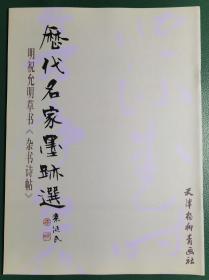 历代名家墨跡選
明祝允明草书《杂书诗帖》
天津杨柳青画社